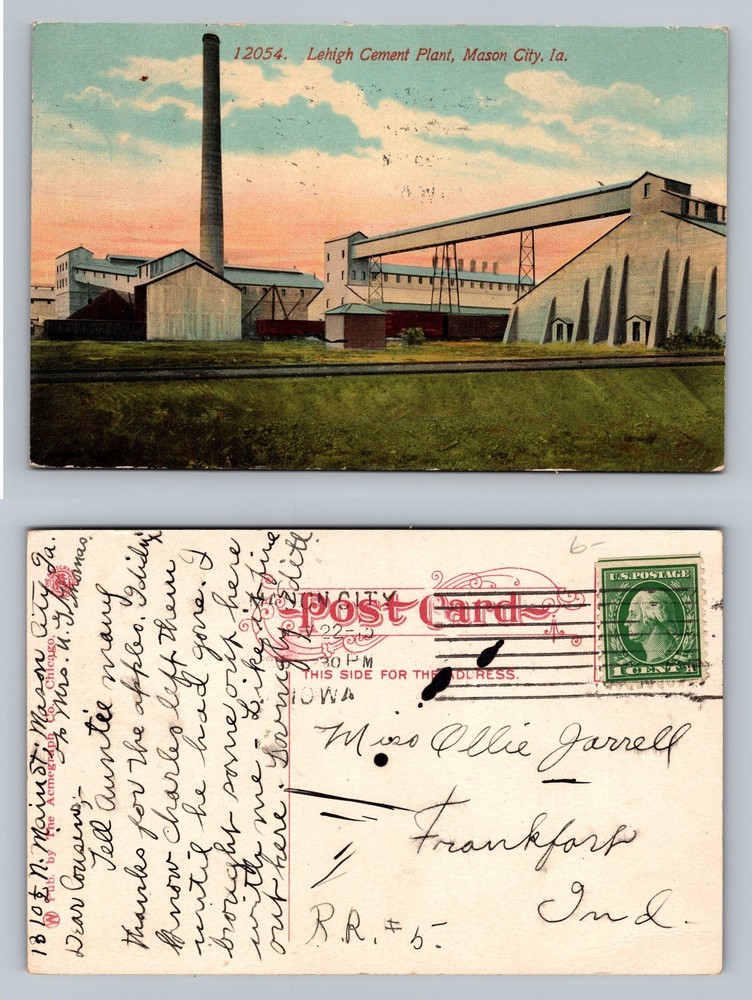 12054. Lehigh Cement Plant, Mason City, Ia.
6-
U.S. POSTAGE
1 CENT 1
MASON CITY
22-
30 PM
IOWA
Post Card
THIS SIDE FOR THE ADDRESS.
Miss Ollie Jarrell
Frankfort
Ind.
R.R. #5.
Pub. by The Acmegraph Co., Chicago.
N. Main St. Mason City Ia.
Mrs. Thomas.
Dear Cousin,-
Tell Auntie many
thanks for the apples. I didn't
know Charles left them
until he had gone. I
brought some out here
with me - Like it fine
out here. Lovingly Edith.